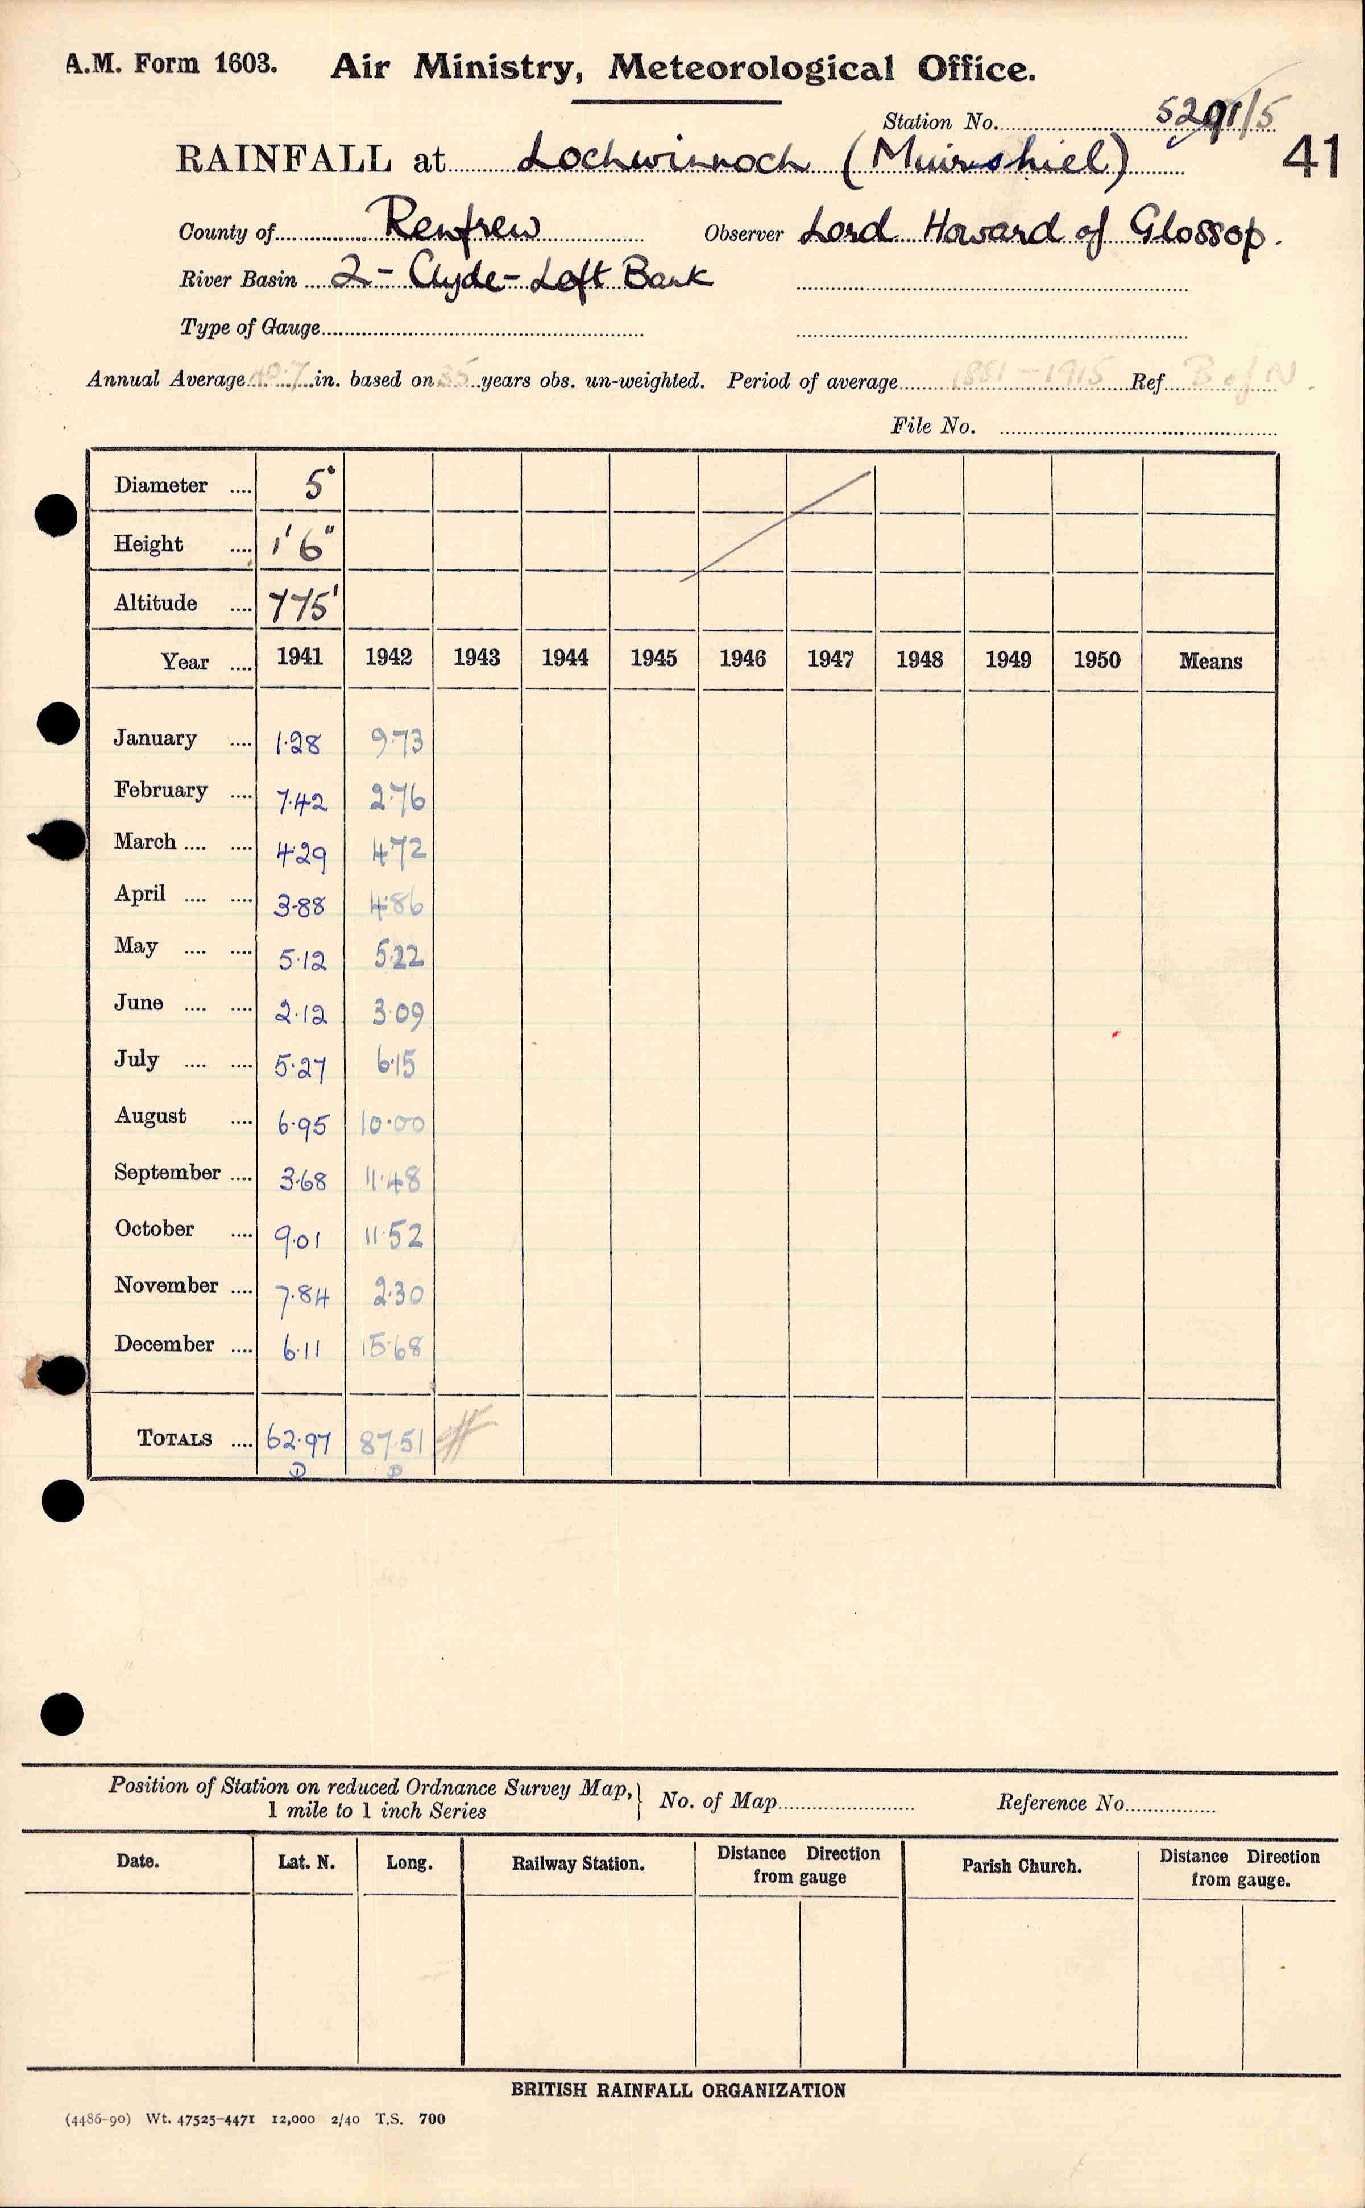 A.M. Form 1603. Air Ministry, Meteorological Office.
Station No. 5291/5
41
RAINFALL at Lochwinnoch (Muirshiel)
County of Renfrew Observer Lord Howard of Glossop.
River Basin 2 - Clyde - Left Bank
Type of Gauge
Annual Average in. based on 35 years obs. un-weighted. Period of average 1881-1915 Ref. B of N.
File No.
Diameter .... 5"
Height .... 1'6"
Altitude .... 775'
Year .... 1941 1942 1943 1944 1945 1946 1947 1948 1949 1950 Means
January .... 1.28 9.73
February .... 7.42 2.76
March .... .... 4.29 4.72
April .... .... 3.88 4.86
May .... .... 5.12 5.22
June .... .... 2.12 3.09
July .... .... 5.27 6.15
August .... 6.95 10.00
September .... 3.68 11.48
October .... 9.01 11.52
November .... 7.84 2.30
December .... 6.11 15.68
TOTALS .... 62.97 87.51
D D
Position of Station on reduced Ordnance Survey Map, } No. of Map Reference No.
1 mile to 1 inch Series
Date. Lat. N. Long. Railway Station. Distance Direction from gauge Parish Church. Distance Direction from gauge.
BRITISH RAINFALL ORGANIZATION
(4486-90) Wt. 47525-4471 12,000 2/40 T.S. 700